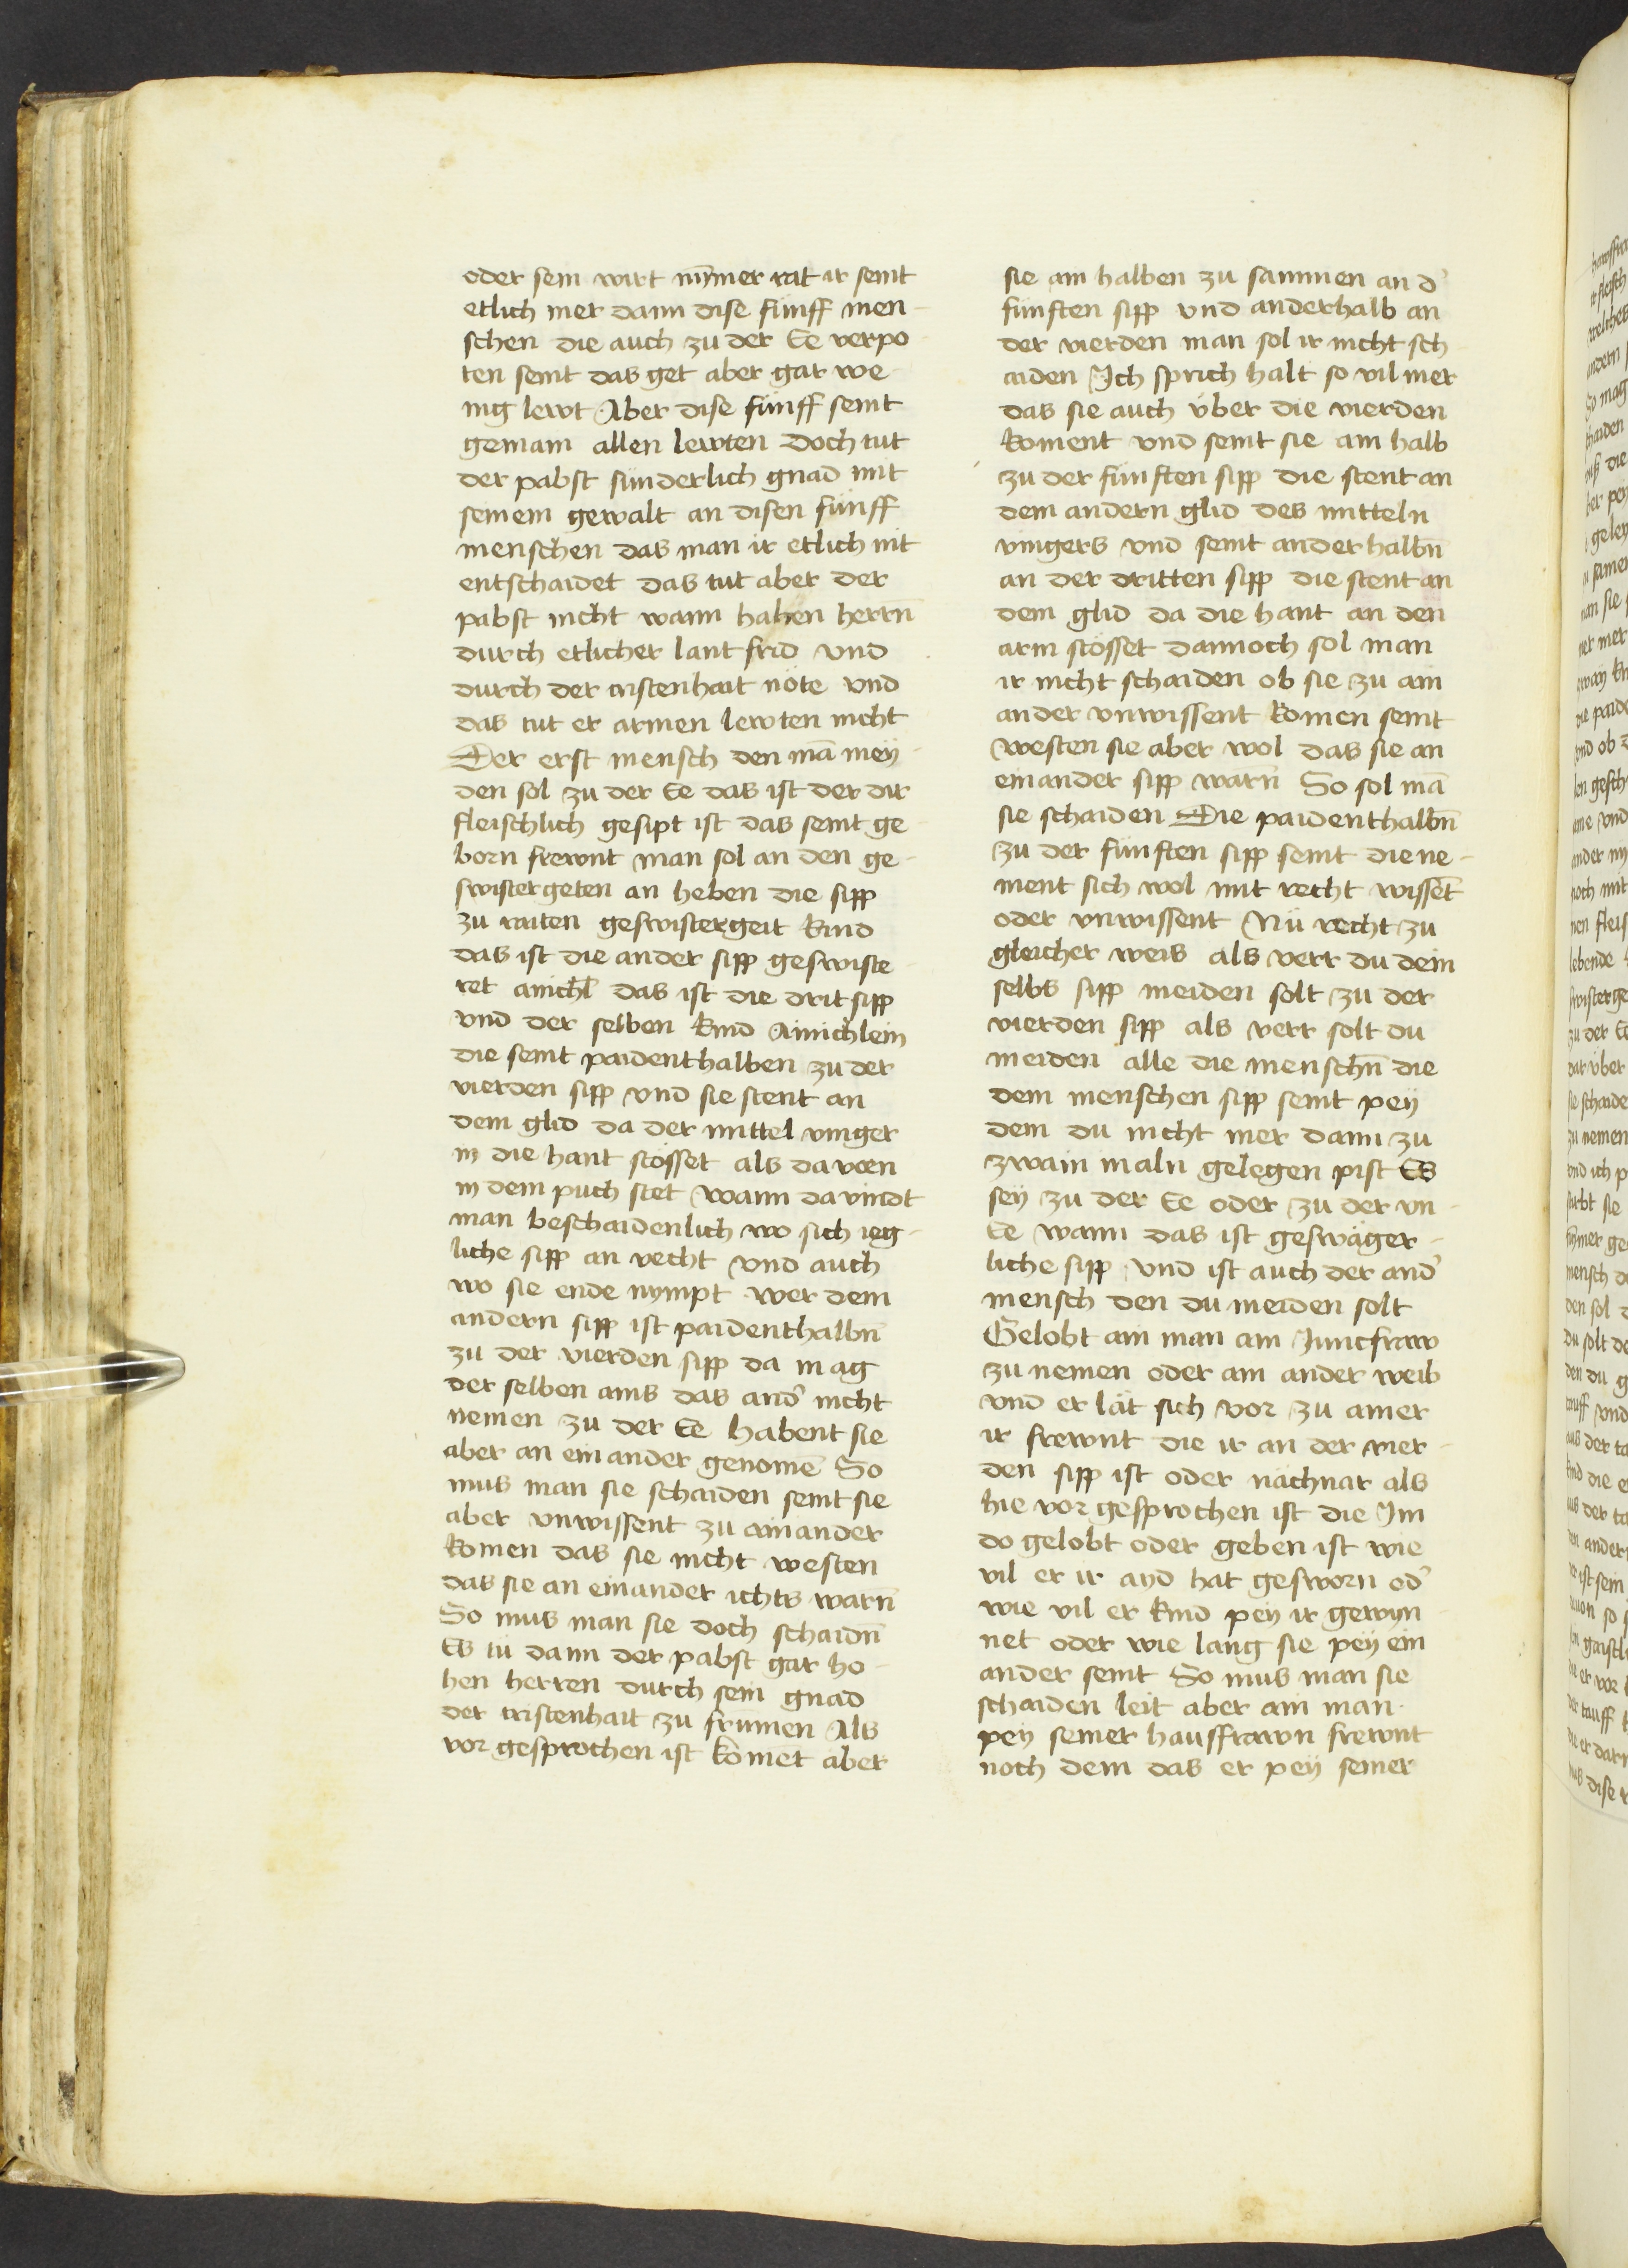 oder sein wirt nȳmer rat ir seint
etlich mer dann dise fünff men-
schen die auch zu der Ee verpo
ten seint das get aber gar we-
nig lewt Aber dise fünff seint
gemain allen lewten Doch tut
der pabst sünderlich gnad mit
seinem gewalt an disen fünff
menschen das man ir etlich nit
entschaidet das tut aber der
pabst nicht wann hahen herrn̄
durch etlicher lant frid vnd
durch der cristenhait nöte vnd
das tut er armen lewten nicht
Der erst mensch den mā mey-
den sol zu der Ee das ist der dir
fleischlich gesipt ist das seint ge-
born frewnt man sol an den ge-
swistergeten an heben die sipp
zu raiten geswistergeit kind
das ist die ander sipp geswiste
ret ainichl̄ das ist die drit sipp
vnd der selben kind Ainichlein
die seint paidenthalben zu der
vierden sipp vnd sie stent an
dem glid da der mittel vinger
in die hant stösset als da voen
in dem puch stet wann da vindt
man beschaidenlich wo sich ieg-
liche sipp an recht vnd auch
wo sie ende nympt wer dem
andern sipp ist paidenthalbn̄
zu der vierden sipp da mag
der selben ains das and̄ nicht
nemen zu der Ee habent sie
aber an ein ander genomē So
mus man sie schaiden seint sie
aber vnwissent zu ainander
komen das sie nicht westen
das sie an einander ichts warn̄
So mus man sie doch schaidn̄
Es tü dann der pabst gar ho-
hen herren durch sein gnad
der cristenhait zu frūmen Als
vor gesprochen ist komēt aber
sie ain halben zu sammen an d̄
fünften sipp vnd anderhalb an
der vierden man sol ir nicht sch
aiden Ich sprich halt so vil mer
das sie auch über die vierden
koment vnd seint sie ain halb
zu der fünften sipp die stent an
dem andern glid des mitteln
vingers vnd seint anderhalbn̄
an der dritten sipp die stent an
dem glid da die hant an den
arm stösset dannoch sol man
ir nicht schaiden ob sie zu ain
ander vnwissent komen seint
westen sie aber wol das sie an
einander sipp warn̄ So sol mā
sie schaiden Die paidenthalbn̄
zu der fünften sipp seint die ne-
ment sich wol mit recht wissēt
oder vnwissent Nü recht zu
gleicher weis als verr du dein
selbs sipp meiden solt zu der
vierden sipp als verr solt du
meiden alle die menschn̄ die
dem menschen sipp seint pey
dem du nicht mer dann zu
zwain maln gelegen pist Es
sey zu der Ee oder zu der vn-
Ee wann das ist geswäger-
liche sipp vnd ist auch der and̄
mensch den du meiden solt
Gelobt ain man ain Juncfraw
zu nemen oder ain ander weib
vnd er lät sich vor zu ainer
ir frewnt die ir an der vier-
den sipp ist oder nächnar als
hie vor gesprochen ist die Im
do gelobt oder geben ist wie
vil er ir ayd hat gesworn od̄
wie vil er kind pey ir gewyn
net oder wie lang sie pey ein
ander seint So mus man sie
schaiden leit aber ain man
pey seiner hausfrawn frewnt
noch dem das er pey seiner